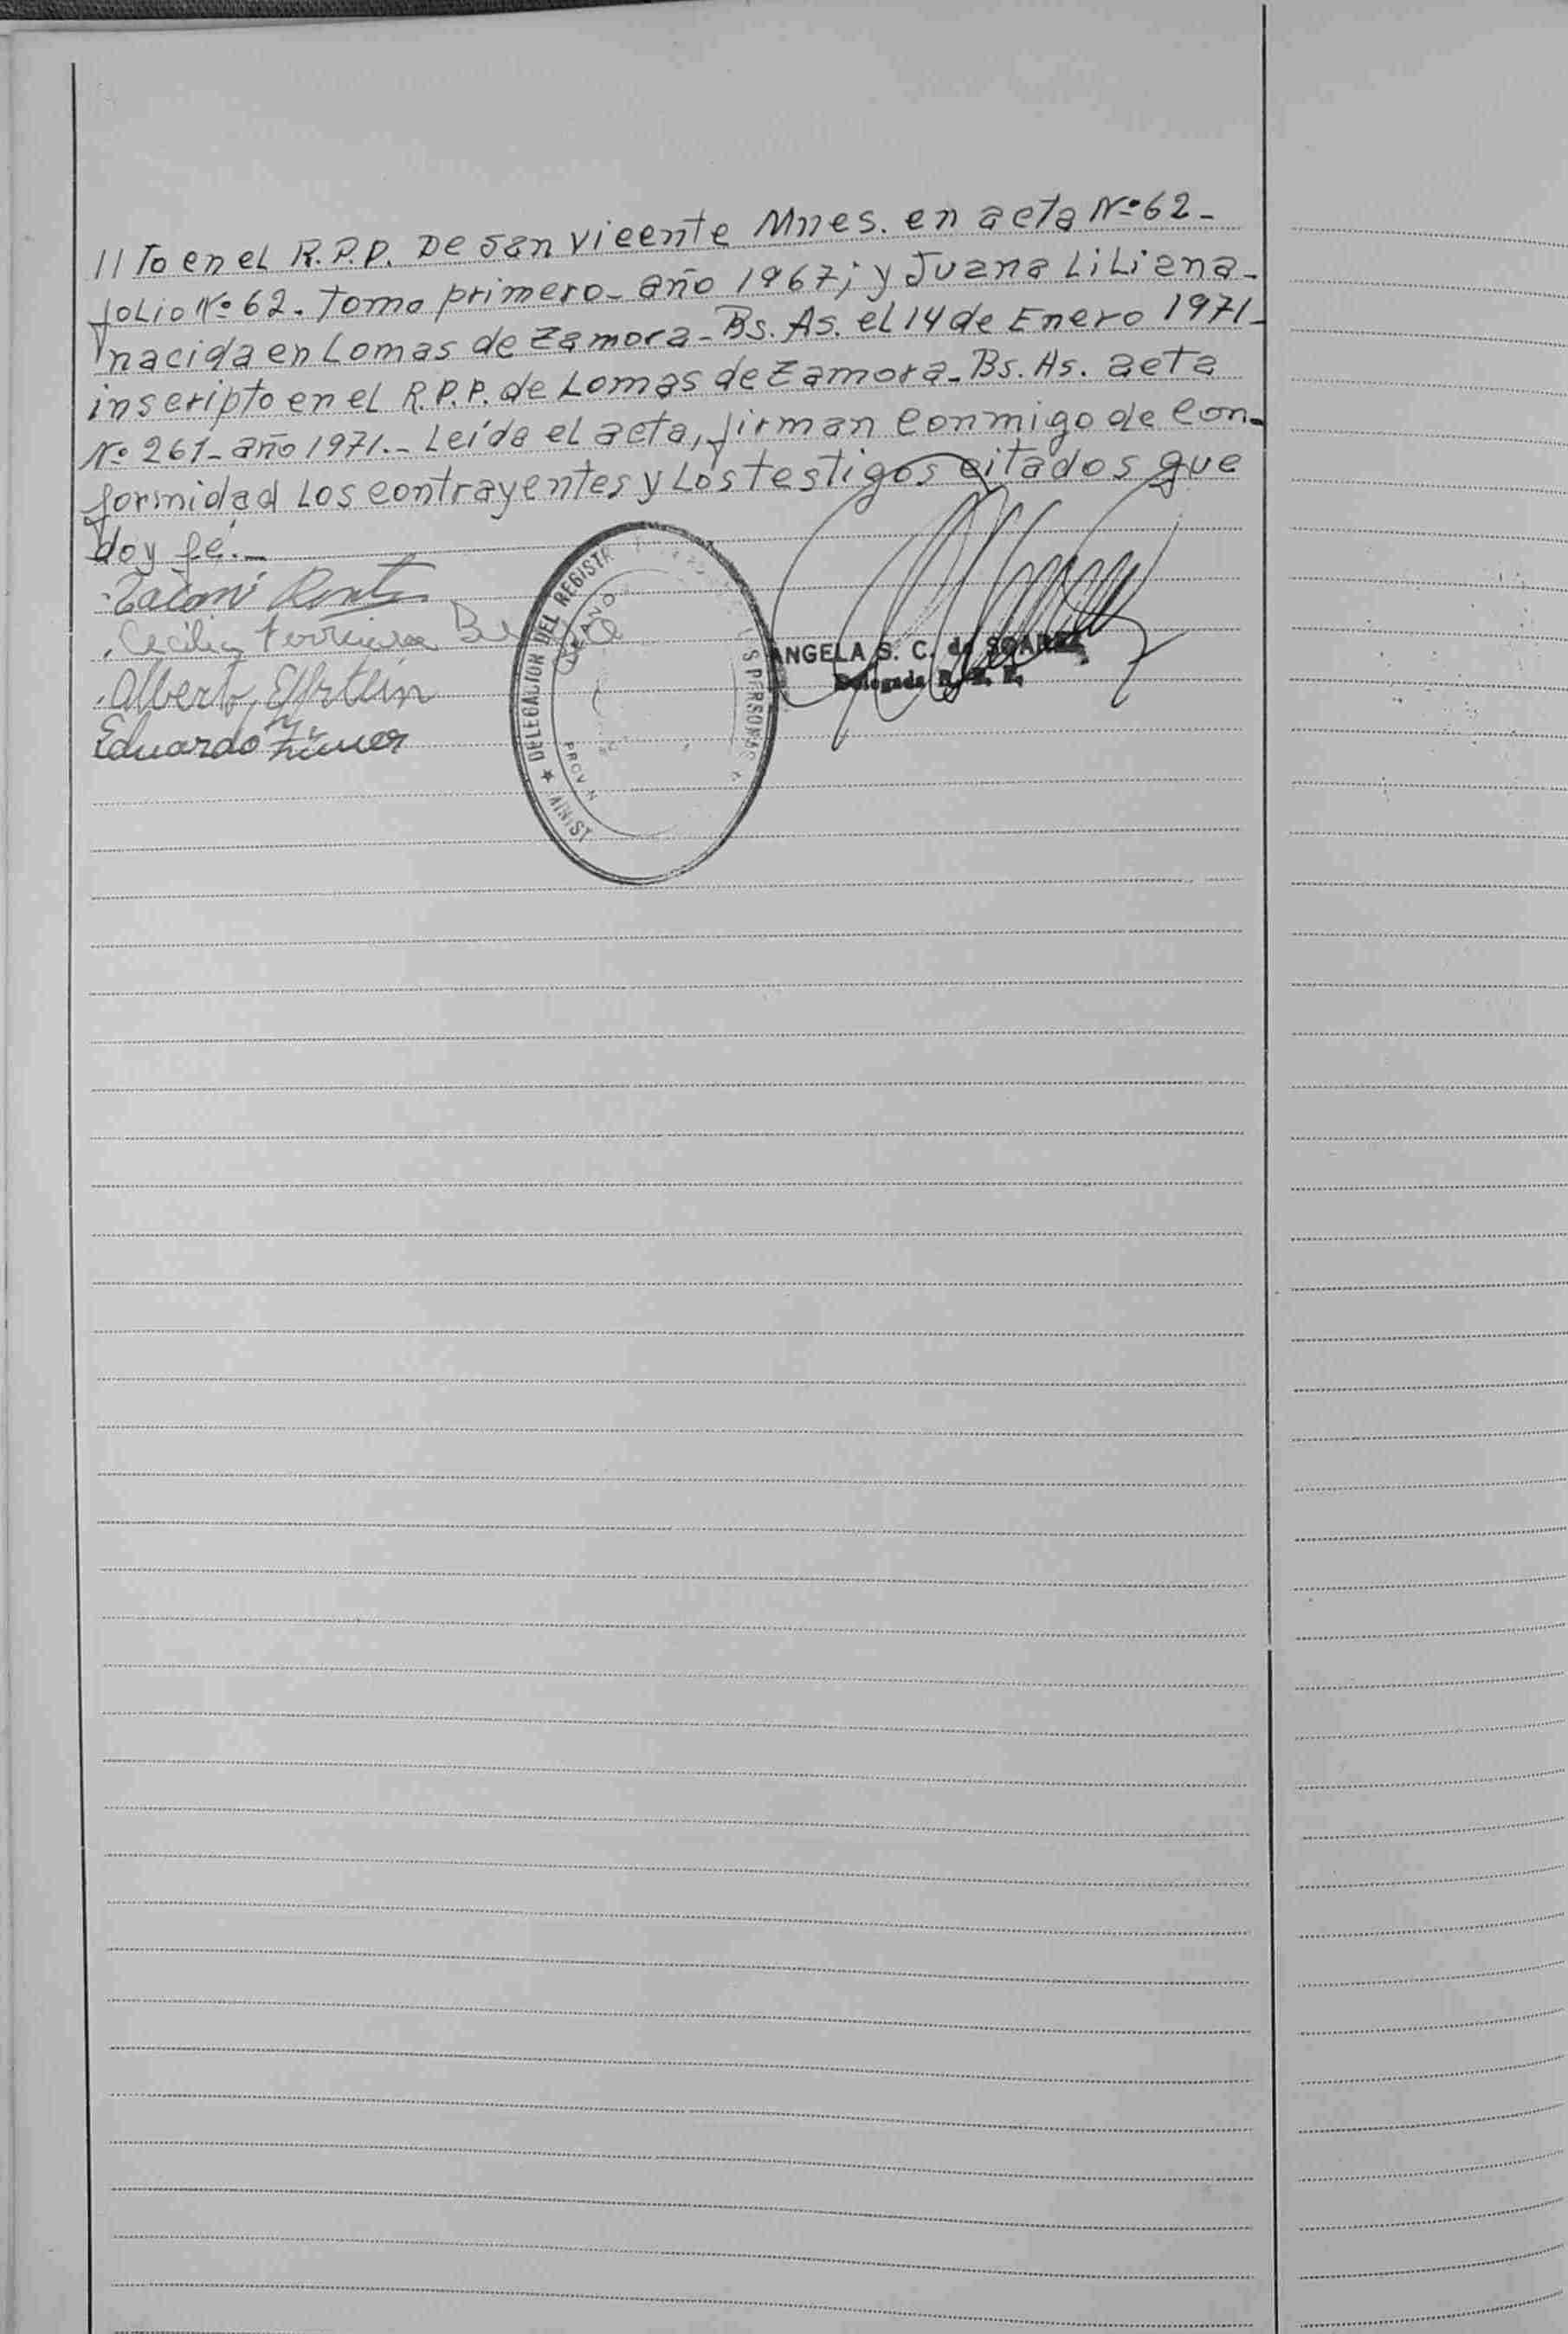 //To en el R.P.P. De San Vicente Mnes. en acta Nº 62-
folio Nº 62. Tomo primero- año 1967; y Juana Liliana-
nacida en Lomas de Zamora- Bs. As. el 14 de Enero 1971-
inscripto en el R.P.P. de Lomas de Zamora- Bs. As. acta
Nº 261- año 1971.- Leída el acta, firman conmigo de con-
formidad los contrayentes y los testigos citados que
doy fé.-
Cecilia Ferreira
Alberto
Eduardo
ANGELA S. C. de SOAREZ
Delegada R. P. P.
★ DELEGACION DEL REGISTR
S PERSONAS ★
LEANDR
PROV
MINIST